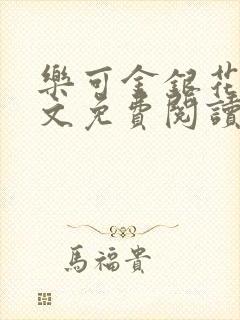 樂可金銀花
文免費閱讀
馬福貴